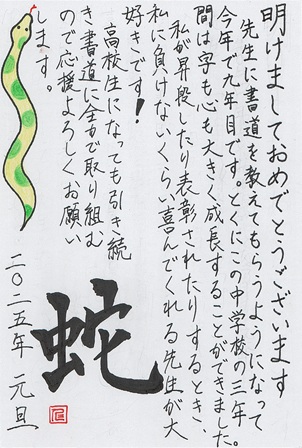 明けましておめでとうございます
先生に書道を教えてもらうようになって
今年で九年目です。とくにこの中学校の三年
間は字も心も大きく成長することができました。
私が昇段したり表彰されたりするとき、
私に負けないくらい喜んでくれる先生が大
好きです！
高校生になっても引き続
き書道に全力で取り組む
ので応援よろしくお願い
します。
蛇
二〇二五年 元旦